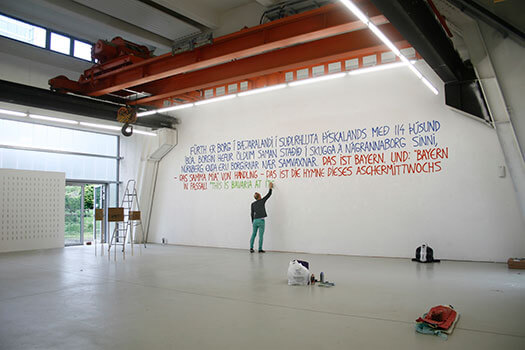 FÜRTH ER BORG Í BÆJARALANDI Í SUÐURHLUTA ÞÝSKALANDS MEÐ 114 ÞÚSUND
ÍBÚA. BORGIN HEFUR ÖLDUM SAMAN STAÐIÐ Í SKUGGA Á NÁGRANNABORG SINNI,
NÜRNBERG ENDA ERU BORGIRNAR NÆR SAMVAXNAR. DAS IST BAYERN. UND: "BAYERN
- DAS SAMMA MIA" VON HAINDLING - DAS IST DIE HYMNE DIESES ASCHERMITTWOCHS
IN PASSAU. "THIS IS BAVARIA AT